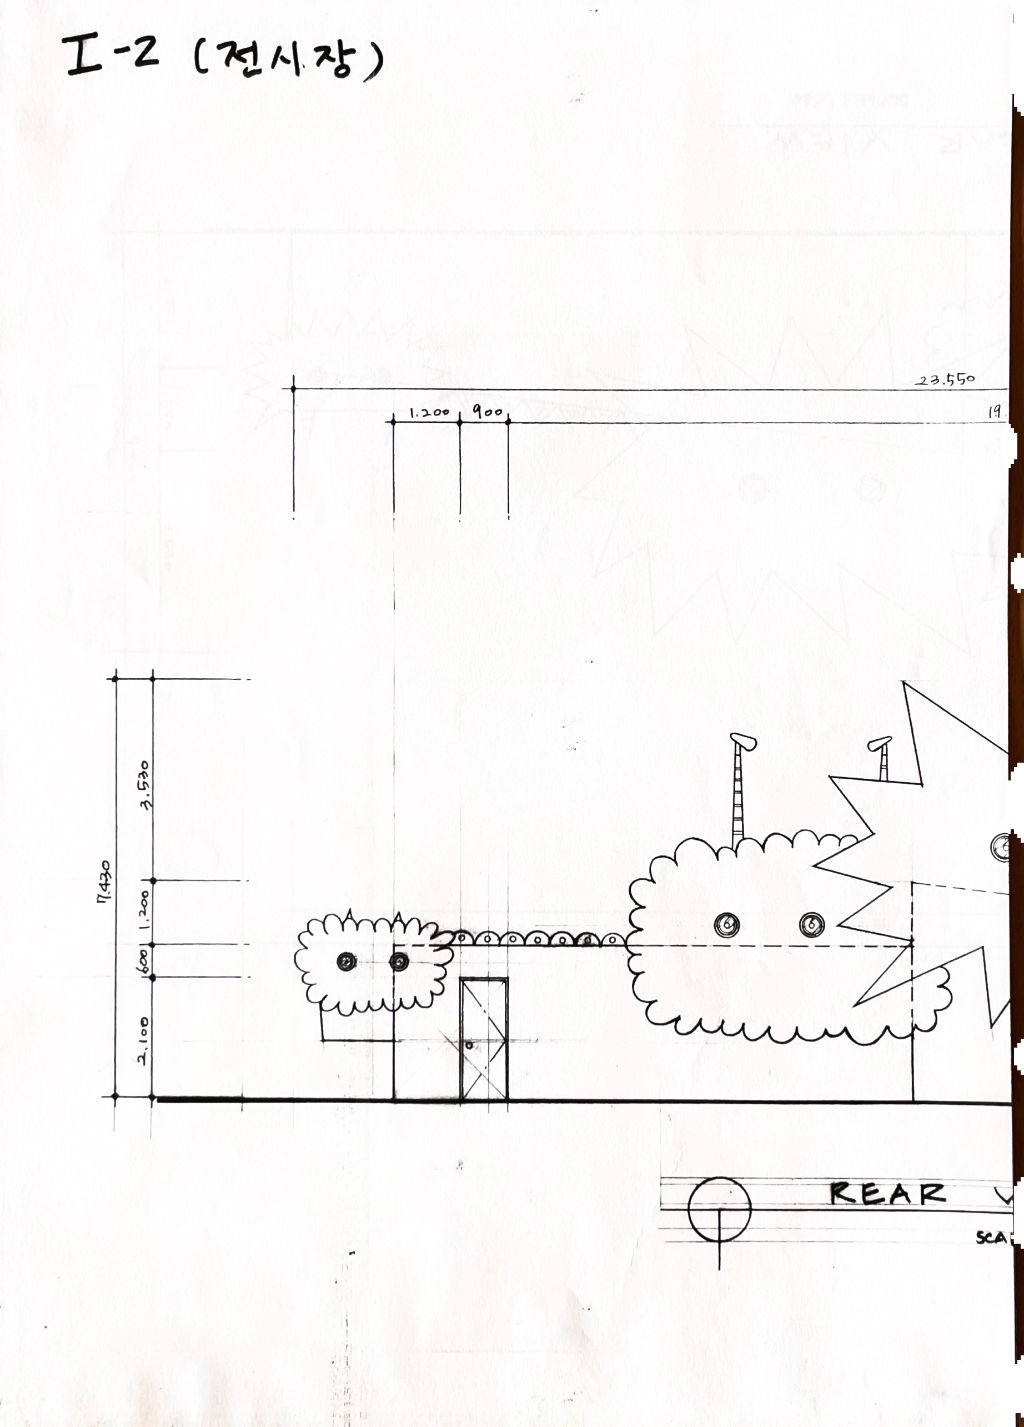 I-2 (전시장)
23.550
1.200 900 19.
3.530
7.430
1.200
600
2.100
REAR
SCA